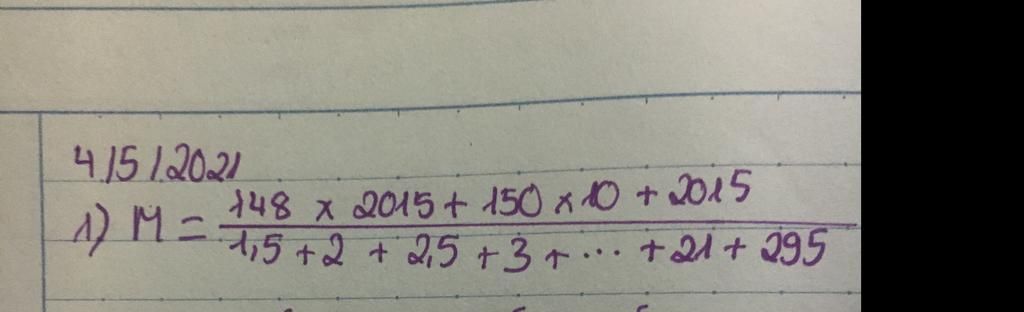 4/5/2021
1) M = 148 x 2015 + 150 x 10 + 2015
1,5 + 2 + 2,5 + 3 + ... + 21 + 295